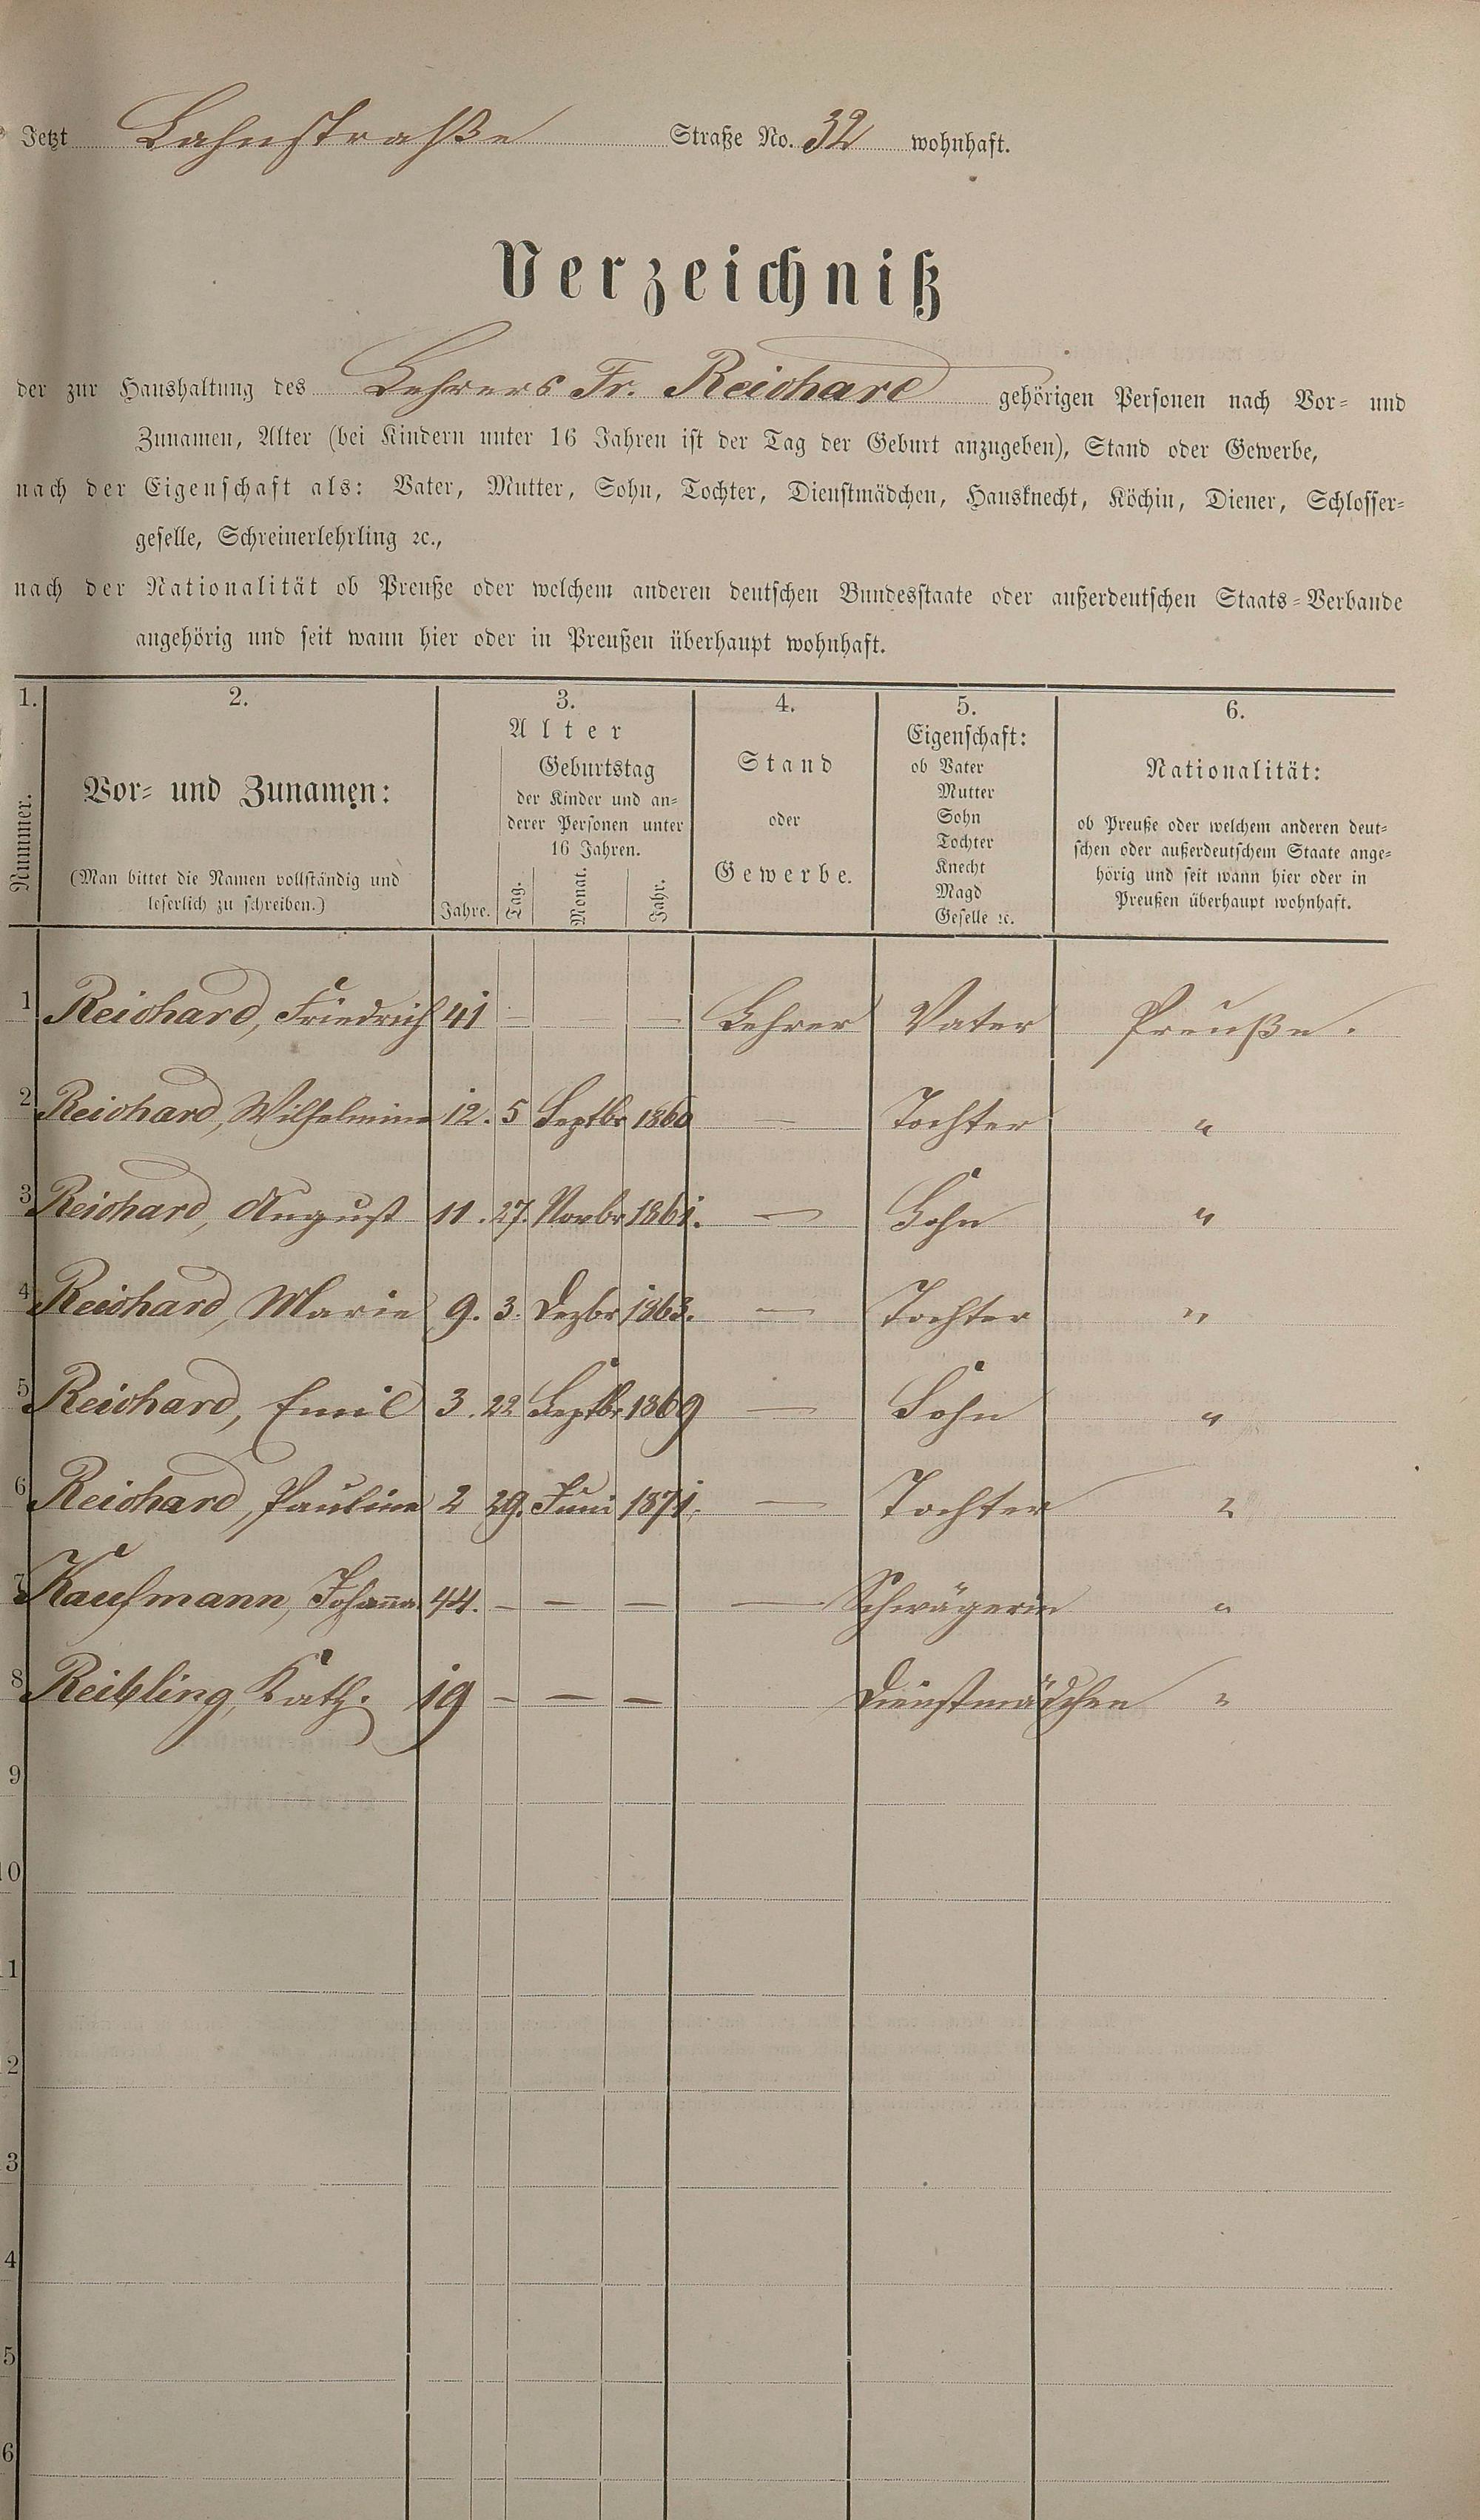 Jetzt Lahnstraße Straße No. 32 wohnhaft.
Verzeichniß
der zur Haushaltung des Lehrers Fr. Reichard gehörigen Personen nach Vor- und
Zunamen, Alter (bei Kindern unter 16 Jahren ist der Tag der Geburt anzugeben), Stand oder Gewerbe,
nach der Eigenschaft als: Vater, Mutter, Sohn, Tochter, Dienstmädchen, Hausknecht, Köchin, Diener, Schlosser-
geselle, Schreinerlehrling ꝛc.,
nach der Nationalität ob Preuße oder welchem anderen deutschen Bundesstaate oder außerdeutschen Staats-Verbande
angehörig und seit wann hier oder in Preußen überhaupt wohnhaft.
1. 2. 3. 4. 5. 6.
Nummer.
Vor- und Zunamen:
(Man bittet die Namen vollständig und
leserlich zu schreiben.)
Alter
Jahre.
Geburtstag
der Kinder und an-
derer Personen unter
16 Jahren.
Tag. Monat. Jahr.
Stand
oder
Gewerbe.
Eigenschaft:
ob Vater
Mutter
Sohn
Tochter
Knecht
Magd
Geselle ꝛc.
Nationalität:
ob Preuße oder welchem anderen deut-
schen oder außerdeutschem Staate ange-
hörig und seit wann hier oder in
Preußen überhaupt wohnhaft.
1 Reichard, Friedrich 41 — — Lehrer Vater Preuße.
2 Reichard, Wilhelmine 12. 5 Septbr 1860 — Tochter "
3 Reichard, August 11. 27. Novbr 1861. — Sohn "
4 Reichard, Marie 9. 3. Dezbr 1863. — Tochter "
5 Reichard, Emil 3. 22 Septbr. 1869 — Sohn "
6 Reichard, Pauline 2 29. Juni 1871. — Tochter "
7 Kaufmann, Johanna 44. — — — — Schwägerin "
8 Reibling, Kath. 19 — — — Dienstmädchen "
9
10
1
2
3
4
5
6